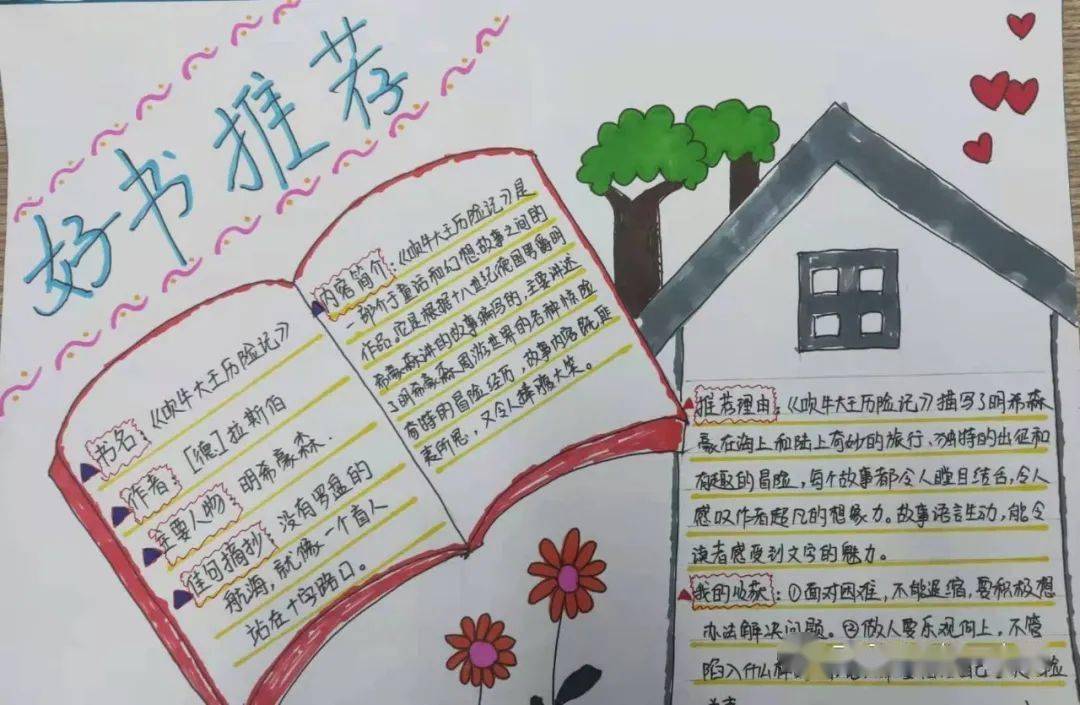 好书推荐
书名：《吹牛大王历险记》
作者 [德]拉斯伯
主要人物 明希豪森.
佳句摘抄：没有罗盘的
航海，就像一个盲人
站在十字路口。
内容简介：《吹牛大王历险记》是
一部介于童话和幻想故事之间的
作品。它是根据十八世纪德国男爵明
希豪森讲的故事编写的，主要讲述
了明希豪森周游世界的各种惊险
奇特的冒险经历，故事内容既匪
夷所思，又令人捧腹大笑。
推荐理由：《吹牛大王历险记》描写了明希豪森
豪在海上和陆上奇妙的旅行、独特的出征和
有趣的冒险，每个故事都令人瞠目结舌，令人
感叹作者超凡的想象力。故事语言生动，能令
读者感受到文字的魅力。
我的收获：①面对困难，不能退缩，要积极想
办法解决问题。②做人要乐观向上，不管
陷入什么样 险